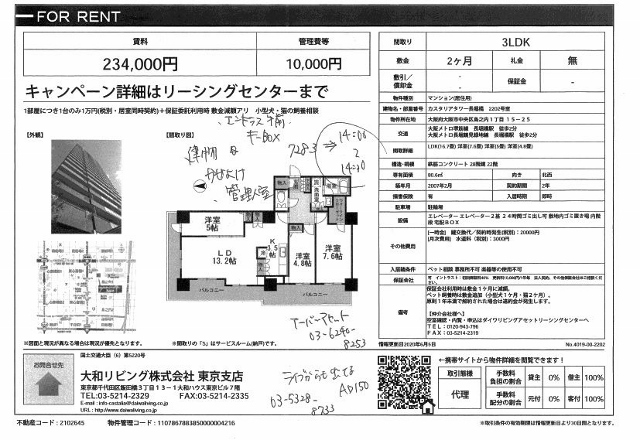 FOR RENT
賃料
管理費等
234,000円
10,000円
キャンペーン詳細はリーシングセンターまで
1部屋につき1台のみ1万円(税別・居室同時契約)+保証委託利用時 敷金減額アリ 小型犬・猫の飼育相談
【外観】
【間取り図】
エントランス手前
キーBOX
7283
14:00
14:00
管理人室
洋室
5帖
LD
13.2帖
K
3.5
洋室
4.8帖
洋室
7.6帖
バルコニー
バルコニー
アーバンアセット
03-6240-
8253
※図面と現況が異なる場合は現況が優先となります。
※間取りの「S」はサービスルーム(納戸)です。
間取り
3LDK
敷金
2ヶ月
礼金
無
敷引/
償却金
保証金
物件種別
マンション(居住用)
建物名・部屋番号
カスタリアタワー長堀橋 2202号室
物件所在地
大阪府大阪市中央区島之内1丁目15-25
交通
大阪メトロ堺筋線 長堀橋駅 徒歩2分
大阪メトロ長堀鶴見緑地線 長堀橋駅 徒歩2分
間取詳細
LDK(16.7畳) 洋室(7.6畳) 洋室(5畳) 洋室(4.8畳)
構造・規模
鉄筋コンクリート 28階建 22階
専有面積
80.6㎡
向き
北西
築年月
2007年2月
契約期間
2年
損害保険
有
入居時期
即時
駐車場
駐輪場
設備
エレベーター エレベーター2基 24時間ゴミ出し可 敷地内ゴミ置き場 内階段 宅配BOX
その他費用
[一時金] 鍵交換代/契約時発生(税別):20000円
[月次費用] 水道料(税別):3000円
入居諸条件
ペット相談 事務所不可 楽器等の使用不可
保証会社
備考
保証会社利用時は敷金1ヶ月に減額。
ペット飼育時は敷金追加(小型犬1ヶ月・猫2ヶ月)。
【仲介会社様へ】
空室確認・内覧・申込はダイワリビングアセットリーシングセンターへ
TEL:0120-943-796
FAX:03-5214-2310
情報更新日2020年6月5日
No.4019-00-2202
国土交通大臣(6)第5220号
お問合せ先
大和リビング株式会社 東京支店
東京都千代田区飯田橋3丁目13-1大和ハウス東京ビル7階
TEL:03-5214-2329
FAX:03-5214-2335
URL:http://www.daiwaliving.co.jp
AD150
03-5328-
8233
←携帯サイトから物件詳細を閲覧できます!
取引態様
代理
手数料
負担の割合
貸主
0%
借主
100%
手数料
配分の割合
元付
0%
客付
100%
不動産コード:2102645
物件管理コード:1107867883850000004216
※取引条件の有効期限は情報更新日より30日間となります。